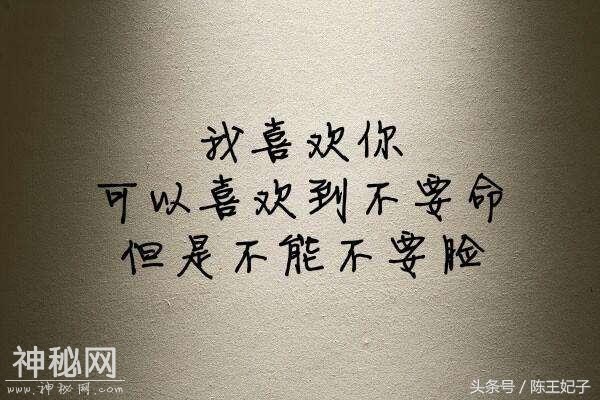 我喜欢你
可以喜欢到不要命
但是不能不要脸
神秘网
www.神秘网.com
头条号 / 陈王妃子